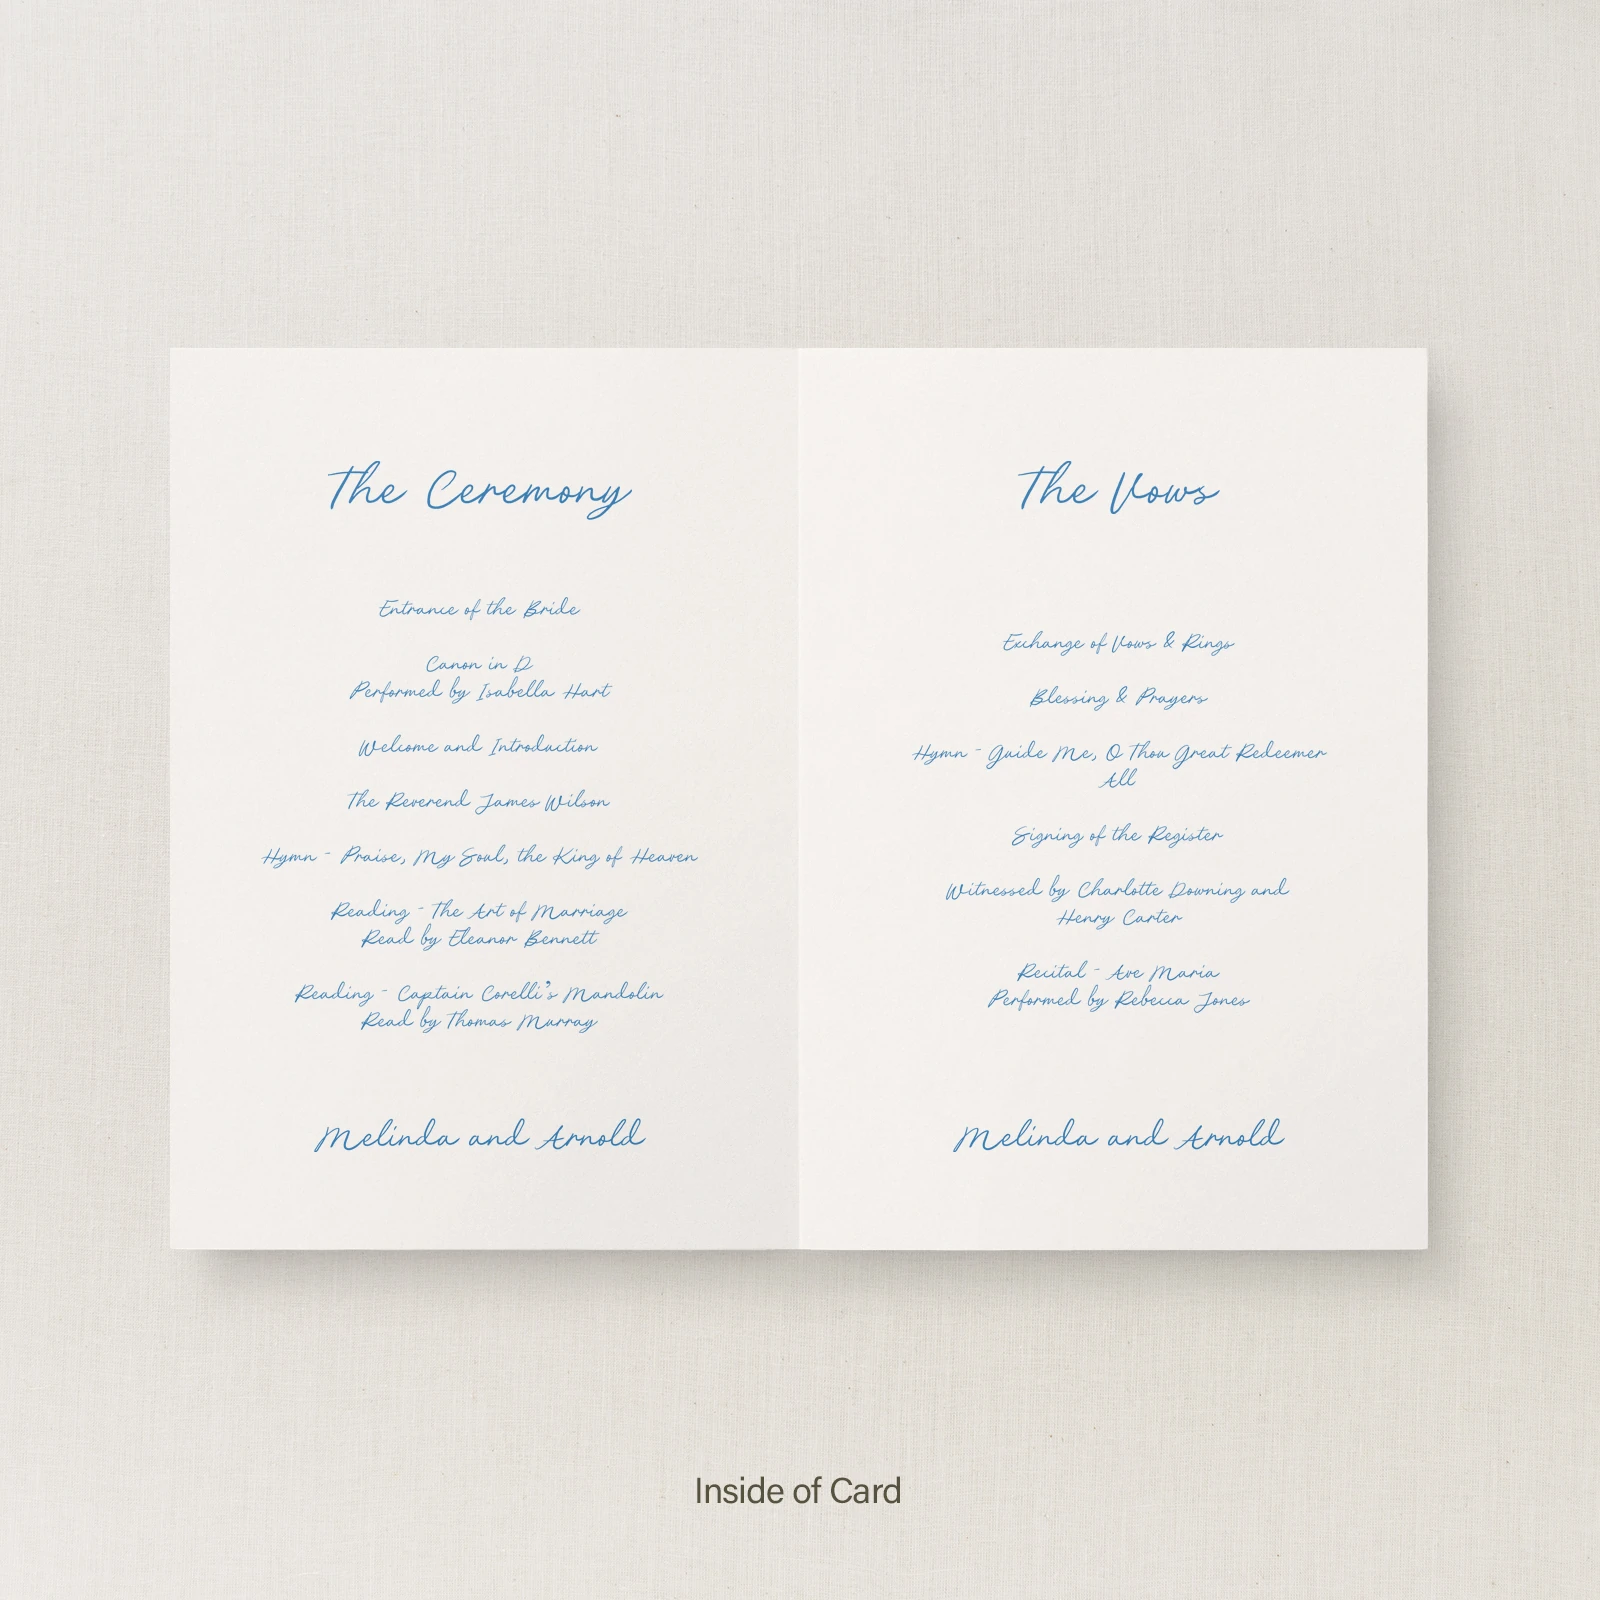 The Ceremony
Entrance of the Bride
Canon in D
Performed by Isabella Hart
Welcome and Introduction
The Reverend James Wilson
Hymn - Praise, My Soul, the King of Heaven
Reading - The Art of Marriage
Read by Eleanor Bennett
Reading - Captain Corelli's Mandolin
Read by Thomas Murray
Melinda and Arnold
The Vows
Exchange of Vows & Rings
Blessing & Prayers
Hymn - Guide Me, O Thou Great Redeemer
All
Signing of the Register
Witnessed by Charlotte Downing and
Henry Carter
Recital - Ave Maria
Performed by Rebecca Jones
Melinda and Arnold
Inside of Card